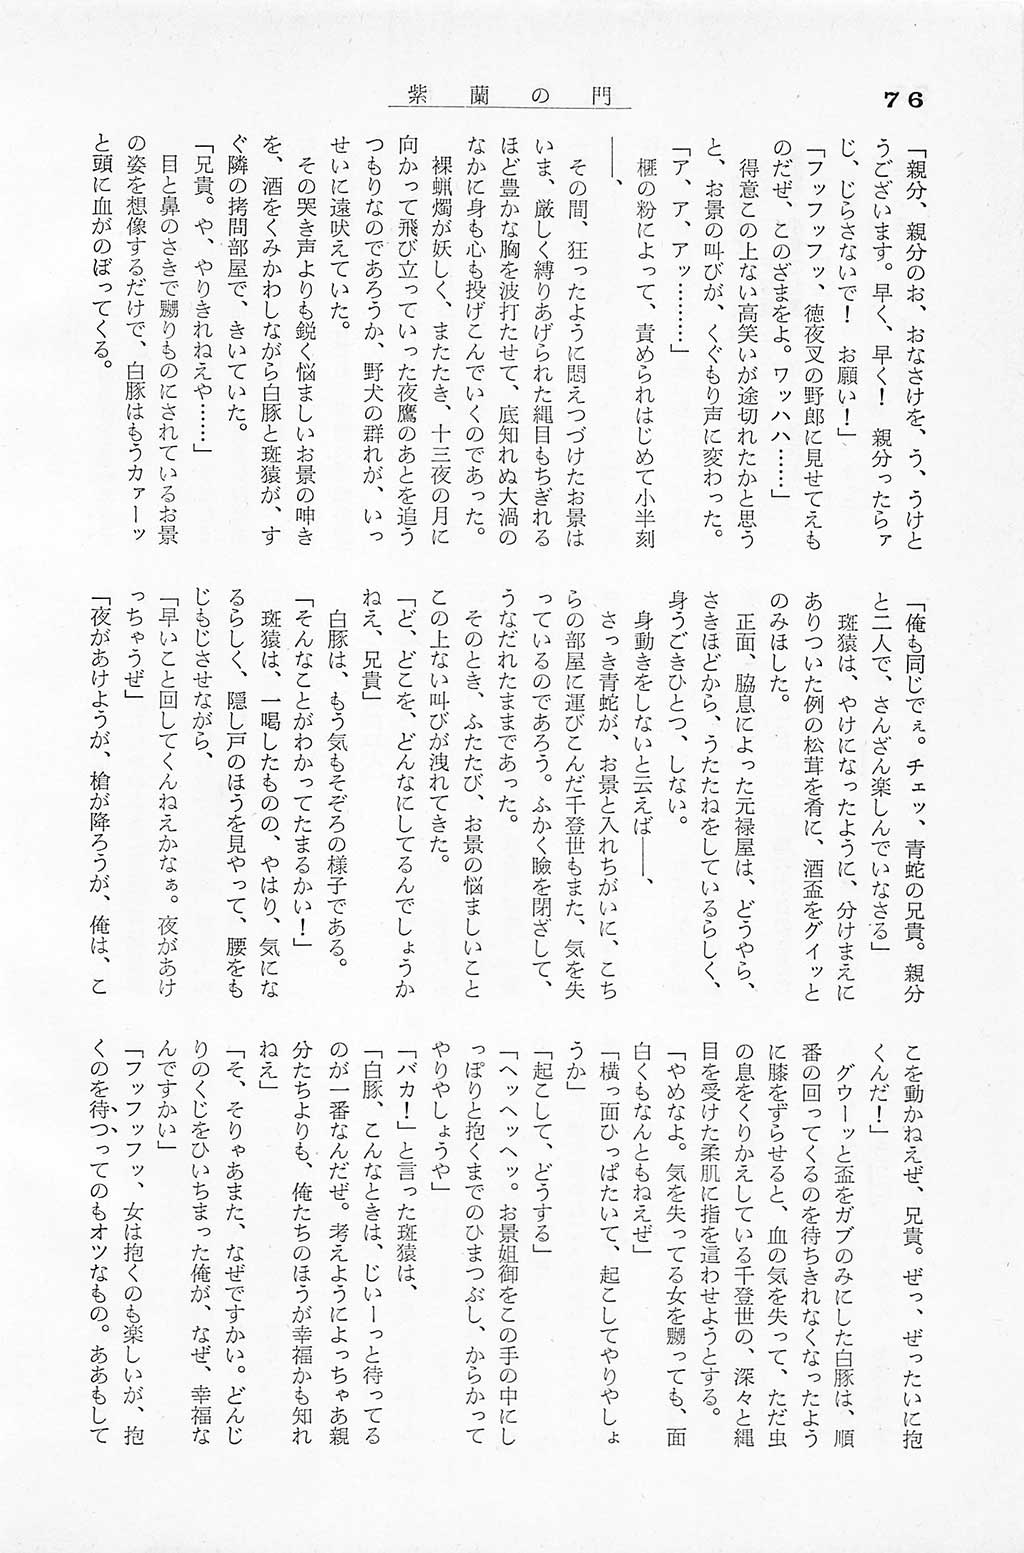 76
紫蘭の門
「親分、親分のお、おなさけを、う、うけと
うございます。早く、早く！　親分ったらァ
じ、じらさないで！　お願い！」
「フッフッフッ、徳夜叉の野郎に見せてえも
のだぜ、このざまをよ。ワッハハ……」
　得意この上ない高笑いが途切れたかと思う
と、お景の叫びが、くぐもり声に変わった。
「ア、ア、アッ………」
　榧の粉によって、責められはじめて小半刻
――、
　その間、狂ったように悶えつづけたお景は
いま、厳しく縛りあげられた縄目もちぎれる
ほど豊かな胸を波打たせて、底知れぬ大渦の
なかに身も心も投げこんでいくのであった。
　裸蝋燭が妖しく、またたき、十三夜の月に
向かって飛び立っていった夜鷹のあとを追う
つもりなのであろうか、野犬の群れが、いっ
せいに遠吠えていた。
　その哭き声よりも鋭く悩ましいお景の呻き
を、酒をくみかわしながら白豚と斑猿が、す
ぐ隣の拷問部屋で、きいていた。
「兄貴。や、やりきれねえや……」
　目と鼻のさきで嬲りものにされているお景
の姿を想像するだけで、白豚はもうカァーッ
と頭に血がのぼってくる。
「俺も同じでぇ。チェッ、青蛇の兄貴。親分
と二人で、さんざん楽しんでいなさる」
　斑猿は、やけになったように、分けまえに
ありついた例の松茸を肴に、酒盃をグイッと
のみほした。
　正面、脇息によった元禄屋は、どうやら、
さきほどから、うたたねをしているらしく、
身うごきひとつ、しない。
　身動きをしないと云えば――、
　さっき青蛇が、お景と入れちがいに、こち
らの部屋に運びこんだ千登世もまた、気を失
っているのであろう。ふかく瞼を閉ざして、
うなだれたままであった。
　そのとき、ふたたび、お景の悩ましいこと
この上ない叫びが洩れてきた。
「ど、どこを、どんなにしてるんでしょうか
ねえ、兄貴」
　白豚は、もう気もそぞろの様子である。
「そんなことがわかってたまるかい！」
　斑猿は、一喝したものの、やはり、気にな
るらしく、隠し戸のほうを見やって、腰をも
じもじさせながら、
「早いこと回してくんねえかなぁ。夜があけ
っちゃうぜ」
「夜があけようが、槍が降ろうが、俺は、こ
こを動かねえぜ、兄貴。ぜっ、ぜったいに抱
くんだ！」
　グウーッと盃をガブのみにした白豚は、順
番の回ってくるのを待ちきれなくなったよう
に膝をずらせると、血の気を失って、ただ虫
の息をくりかえしている千登世の、深々と縄
目を受けた柔肌に指を這わせようとする。
「やめなよ。気を失ってる女を嬲っても、面
白くもなんともねえぜ」
「横っ面ひっぱたいて、起こしてやりやしょ
うか」
「起こして、どうする」
「ヘッヘッヘッ。お景姐御をこの手の中にし
っぽりと抱くまでのひまつぶし、からかって
やりやしょうや」
「バカ！」と言った斑猿は、
「白豚、こんなときは、じいーっと待ってる
のが一番なんだぜ。考えようによっちゃあ親
分たちよりも、俺たちのほうが幸福かも知れ
ねえ」
「そ、そりゃあまた、なぜですかい。どんじ
りのくじをひいちまった俺が、なぜ、幸福な
んですかい」
「フッフッフッ、女は抱くのも楽しいが、抱
くのを待つってのもオツなもの。ああもして